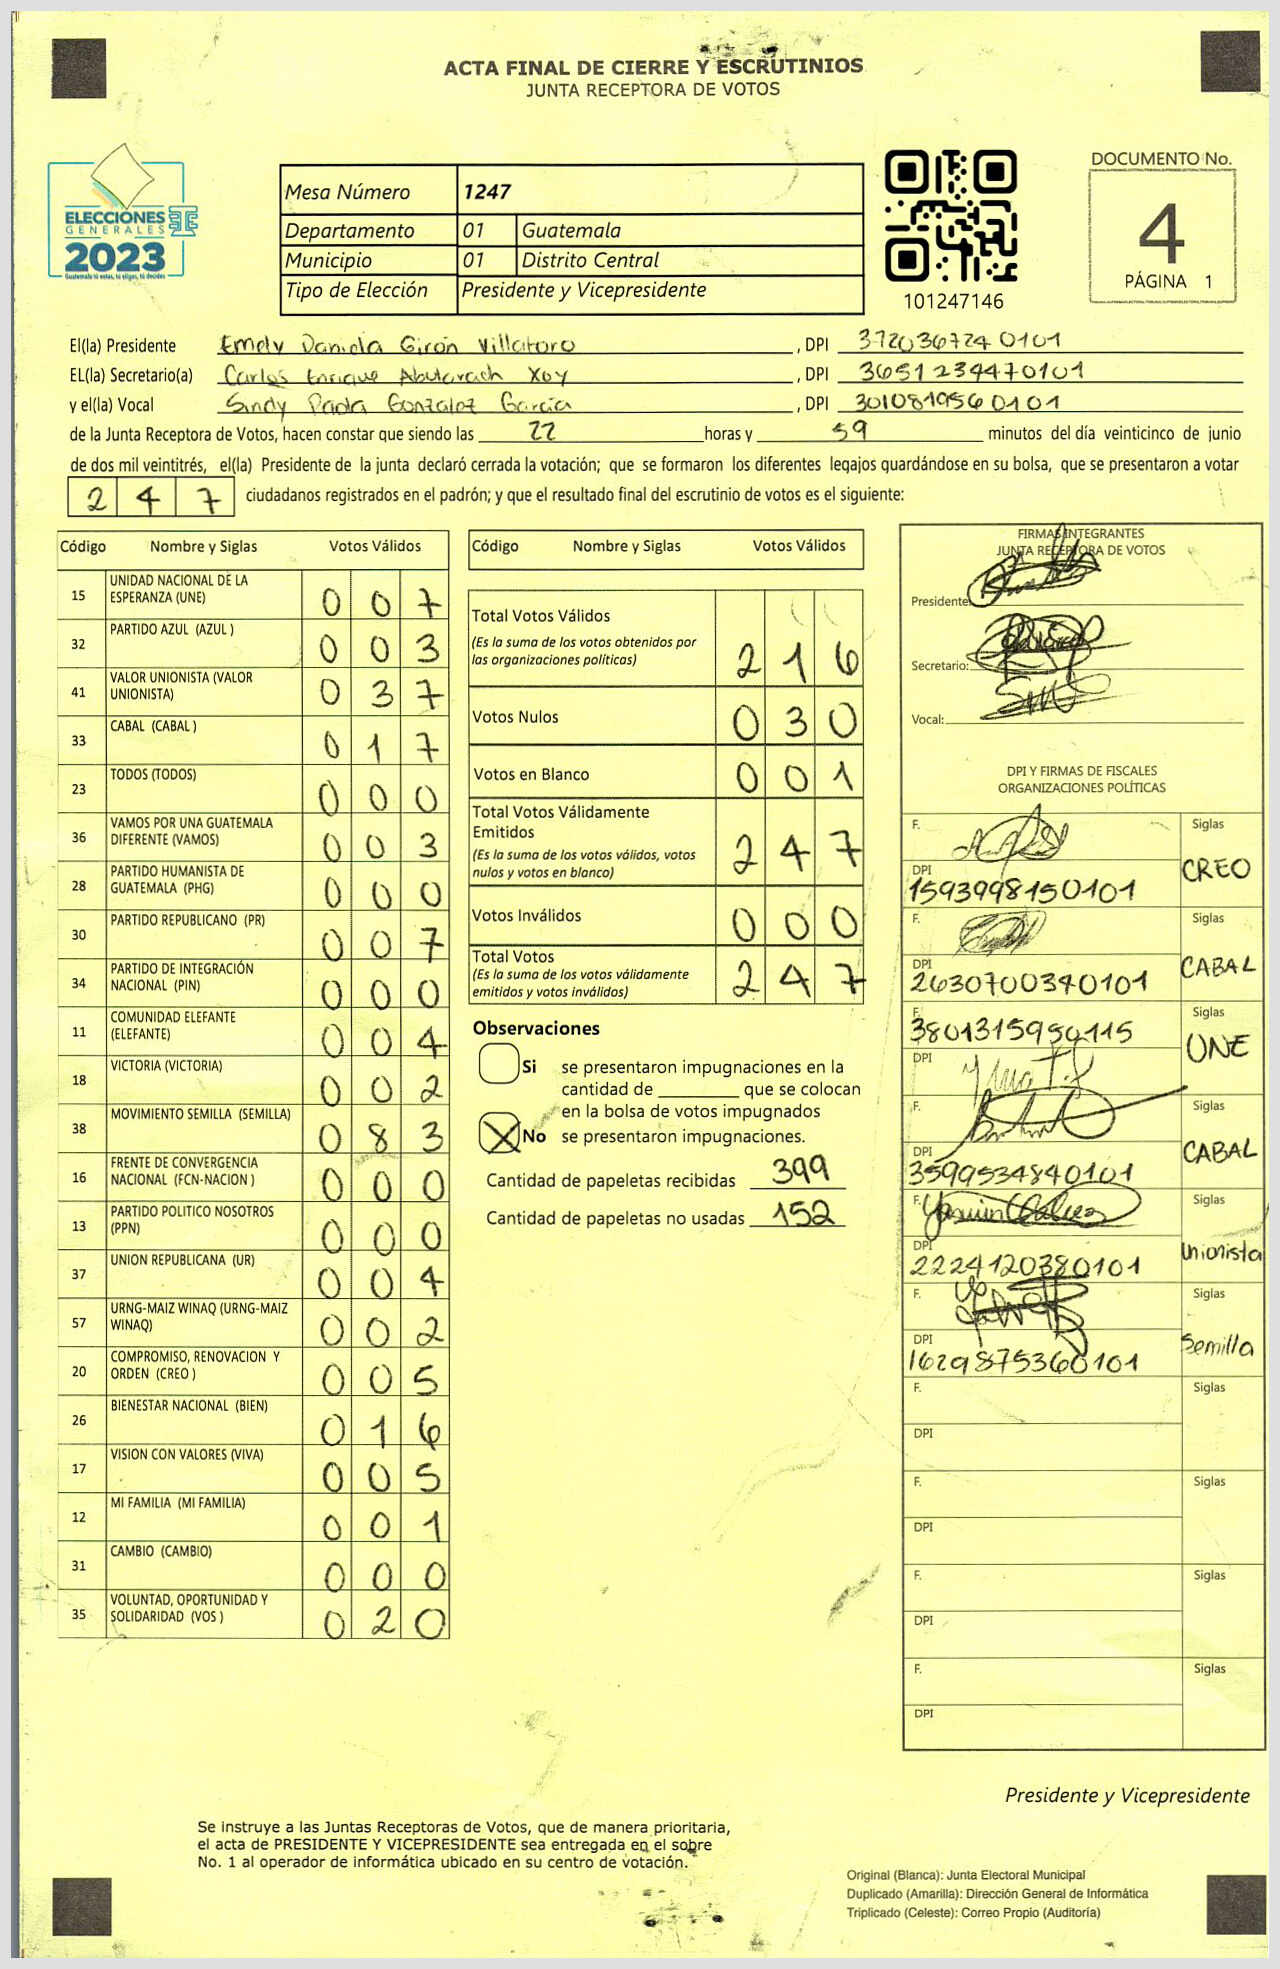 ACTA FINAL DE CIERRE Y ESCRUTINIOS
JUNTA RECEPTORA DE VOTOS
ELECCIONES
GENERALES
2023
Guatemala tú votas, tú eliges, tú decides
Mesa Número 1247
Departamento 01 Guatemala
Municipio 01 Distrito Central
Tipo de Elección Presidente y Vicepresidente
101247146
DOCUMENTO No.
4
PÁGINA 1
El(la) Presidente Emely Daniela Girón Villatoro , DPI 372036724 0101
EL(la) Secretario(a) Carlos Enrique Abularach Xoy , DPI 3651234470101
y el(la) Vocal Sindy Paola Gonzalez García , DPI 301081956 0101
de la Junta Receptora de Votos, hacen constar que siendo las 22 horas y 59 minutos del día veinticinco de junio
de dos mil veintitrés, el(la) Presidente de la junta declaró cerrada la votación; que se formaron los diferentes legajos guardándose en su bolsa, que se presentaron a votar
2 4 7 ciudadanos registrados en el padrón; y que el resultado final del escrutinio de votos es el siguiente:
Código Nombre y Siglas Votos Válidos
15 UNIDAD NACIONAL DE LA
ESPERANZA (UNE) 0 0 7
32 PARTIDO AZUL (AZUL ) 0 0 3
41 VALOR UNIONISTA (VALOR
UNIONISTA) 0 3 7
33 CABAL (CABAL ) 0 1 7
23 TODOS (TODOS) 0 0 0
36 VAMOS POR UNA GUATEMALA
DIFERENTE (VAMOS) 0 0 3
28 PARTIDO HUMANISTA DE
GUATEMALA (PHG) 0 0 0
30 PARTIDO REPUBLICANO (PR) 0 0 7
34 PARTIDO DE INTEGRACIÓN
NACIONAL (PIN) 0 0 0
11 COMUNIDAD ELEFANTE
(ELEFANTE) 0 0 4
18 VICTORIA (VICTORIA) 0 0 2
38 MOVIMIENTO SEMILLA (SEMILLA) 0 8 3
16 FRENTE DE CONVERGENCIA
NACIONAL (FCN-NACION ) 0 0 0
13 PARTIDO POLITICO NOSOTROS
(PPN) 0 0 0
37 UNION REPUBLICANA (UR) 0 0 4
57 URNG-MAIZ WINAQ (URNG-MAIZ
WINAQ) 0 0 2
20 COMPROMISO, RENOVACION Y
ORDEN (CREO ) 0 0 5
26 BIENESTAR NACIONAL (BIEN) 0 1 6
17 VISION CON VALORES (VIVA) 0 0 5
12 MI FAMILIA (MI FAMILIA) 0 0 1
31 CAMBIO (CAMBIO) 0 0 0
35 VOLUNTAD, OPORTUNIDAD Y
SOLIDARIDAD (VOS ) 0 2 0
Código Nombre y Siglas Votos Válidos
Total Votos Válidos
(Es la suma de los votos obtenidos por
las organizaciones políticas) 2 1 6
Votos Nulos 0 3 0
Votos en Blanco 0 0 1
Total Votos Válidamente
Emitidos
(Es la suma de los votos válidos, votos
nulos y votos en blanco) 2 4 7
Votos Inválidos 0 0 0
Total Votos
(Es la suma de los votos válidamente
emitidos y votos inválidos) 2 4 7
Observaciones
Si se presentaron impugnaciones en la
cantidad de ________ que se colocan
en la bolsa de votos impugnados
X No se presentaron impugnaciones.
Cantidad de papeletas recibidas 399
Cantidad de papeletas no usadas 152
FIRMAS INTEGRANTES
JUNTA RECEPTORA DE VOTOS
Presidente:
Secretario:
Vocal:
DPI Y FIRMAS DE FISCALES
ORGANIZACIONES POLÍTICAS
F. Siglas
CREO
DPI
1593998150101
F. Siglas
CABAL
DPI
2630700340101
F. Siglas
3801315950115
UNE
DPI
F. Siglas
CABAL
DPI
3599534840101
F. Siglas
Unionista
DPI
2224120380101
F. Siglas
Semilla
DPI
1629875360101
F. Siglas
DPI
F. Siglas
DPI
F. Siglas
DPI
F. Siglas
DPI
Presidente y Vicepresidente
Se instruye a las Juntas Receptoras de Votos, que de manera prioritaria,
el acta de PRESIDENTE Y VICEPRESIDENTE sea entregada en el sobre
No. 1 al operador de informática ubicado en su centro de votación.
Original (Blanca): Junta Electoral Municipal
Duplicado (Amarilla): Dirección General de Informática
Triplicado (Celeste): Correo Propio (Auditoría)